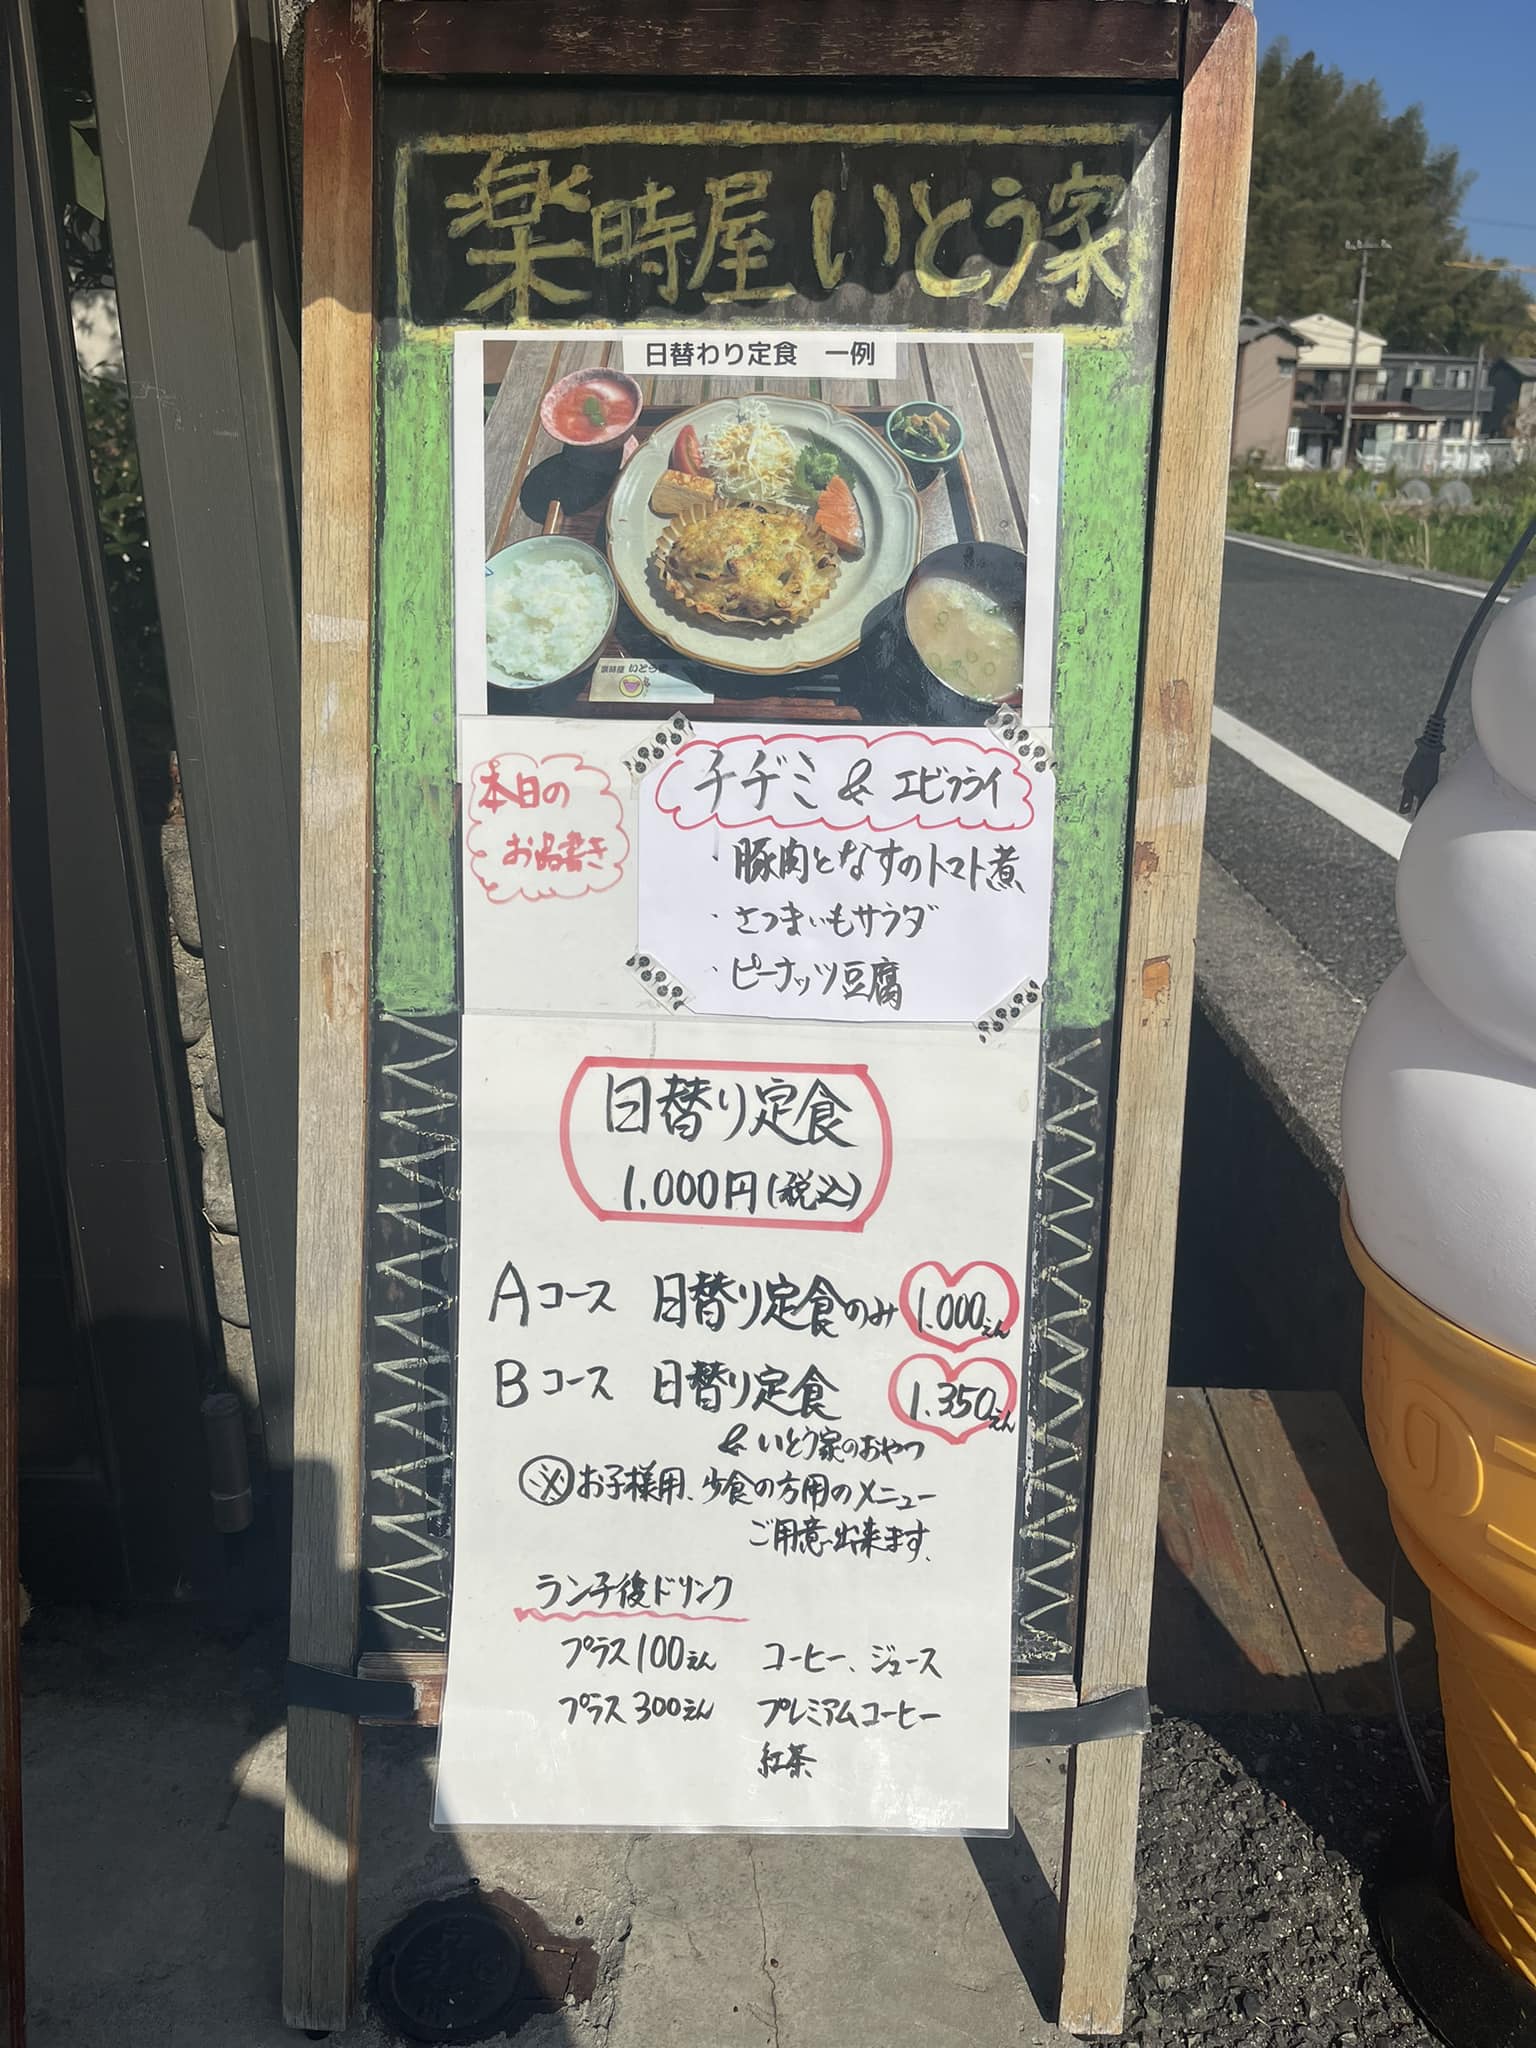 楽時屋 いとう家
日替わり定食 一例
楽時屋 いとう家
本日の
お品書き
チヂミ & エビフライ
・豚肉となすのトマト煮
・さつまいもサラダ
・ピーナッツ豆腐
日替り定食
1.000円(税込)
Aコース 日替り定食のみ 1.000えん
Bコース 日替り定食 1.350えん
& いとう家のおやつ
※お子様用、少食の方用のメニュー
ご用意出来ます、
ランチ後ドリンク
プラス100えん コーヒー、ジュース
プラス300えん プレミアムコーヒー
紅茶